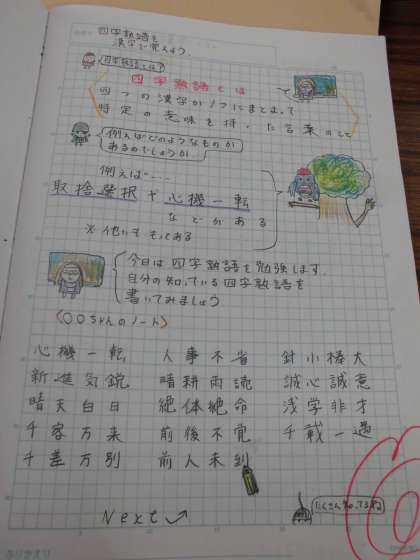 四字熟語を
漢字で覚えよう
四字熟語とは?
四字熟語とは
四つの漢字が1つにまとまって
特定の意味を持った言葉のこと
例えばどのようなものが
あるのでしょうか
例えば…
取捨選択や心機一転
などがある
※他にももっとある
今日は四字熟語を勉強します
自分の知っている四字熟語を
書いてみましょう
〈〇〇ちゃんのノート〉
心機一転 人事不省 針小棒大
新進気鋭 晴耕雨読 誠心誠意
晴天白日 絶体絶命 浅学非才
千客万来 前後不覚 千載一遇
千差万別 前人未到
Next
たくさん知ってるね
ふりかえり